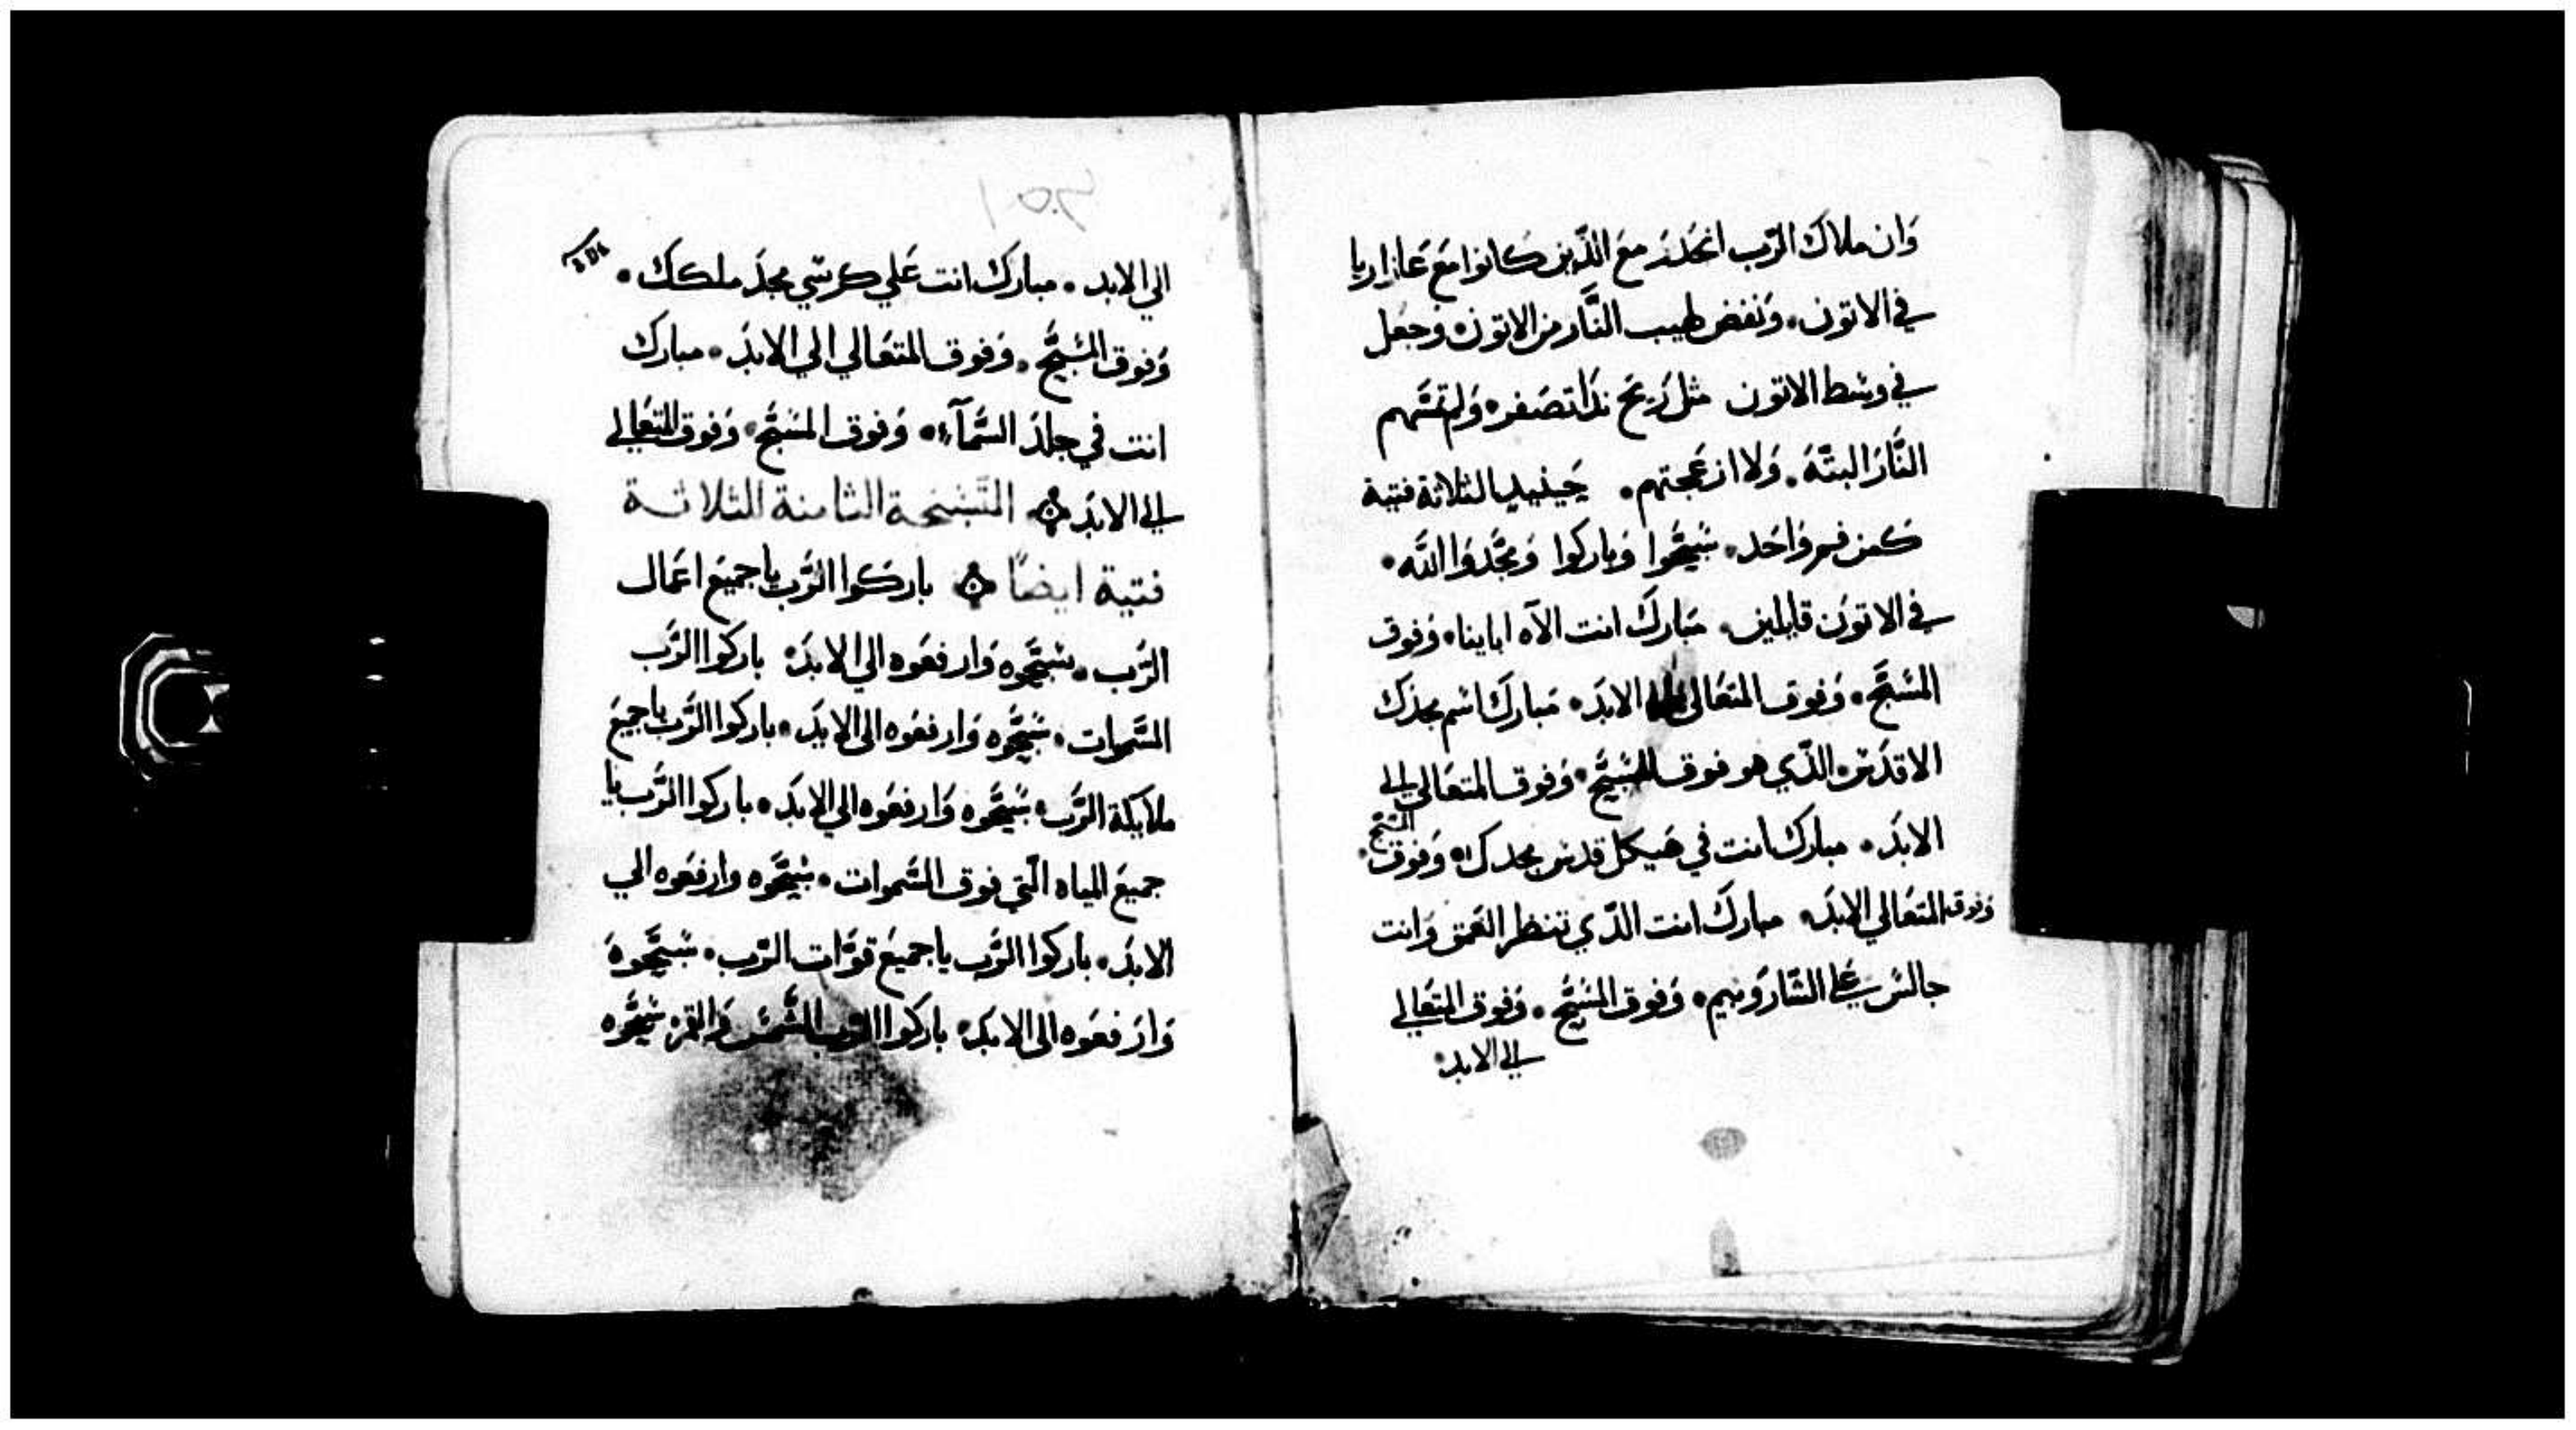 وَان ملاك الرّب انحَدَرَ معَ الذّين كانوا مَع عَازاريا
في الاتون. وَنفض لهيب النَّار من الاتون. وَجعَل
في وسَط الاتون مثل رَيحَ ندَا تصَفر. وَلم تمسّهم
النَّارَ البتّهَ. وَلا ازعَجتهم. حَينيدٍ الثلاثة فتية
كمن فمٍ وَاحَد. سَبّحَوا وَباركوا وَمجَّدوَا اللَّه.
في الاتوَن قايلين. مَبارَك انت الآه اباينا. وَفوق
المسَبَّح. وَفوق المتعَالي الابدَ. مَبارَك اسم مجدَك
الاقدَس. الذّي هو فوق المسَبّح. وَفوق المتعَالي الي
الابدَ. مبارك انت في هَيكل قدس مجدك. وَفوق المسَبّح.
وَفوق المتعَالي الابدَ. مبارَك انت الذّي تنظر العَمق وَانت
جالسَ عَلي الشّاروَبيم. وَفوق المسَبّح. وَفوق المتعَالي
الي الابد.
201
الي الابد. مبارَك انت عَلي كرسّي مجدَ ملكك.
وَفوق المسَبّح. وَفوق المتعَالي الي الابدَ. مبارك
انت في جلدَ السَّمآء. وَفوق المسَبّح. وَفوق المتعَالي
الي الابدَ التّسَبحَة الثامنة للثلاثة
فتية ايضًا باركوا الرَّب يا جميَع اعَمال
الرَّب. سَبّحَوه وَارفعَوه الي الابدَ. باركوا الرَّب
السَّموات. سَبّحَوه وَارفعَوه الي الابدَ. باركوا الرَّب يا جميعَ
ملايكة الرَّب. سَبّحَوه وَارفعَوه الي الابدَ. باركوا الرَّب يا
جميعَ المياه الّتي فوق السَّموات. سَبّحَوه وارفعَوه الي
الابدَ. باركوا الرَّب يا جميعَ قوَّات الرّب. سَبّحَوهَ
وَارَفعَوه الي الابدَ. باركوا الرَّب الشَّمسَ وَالقمرَ سَبّحَوه